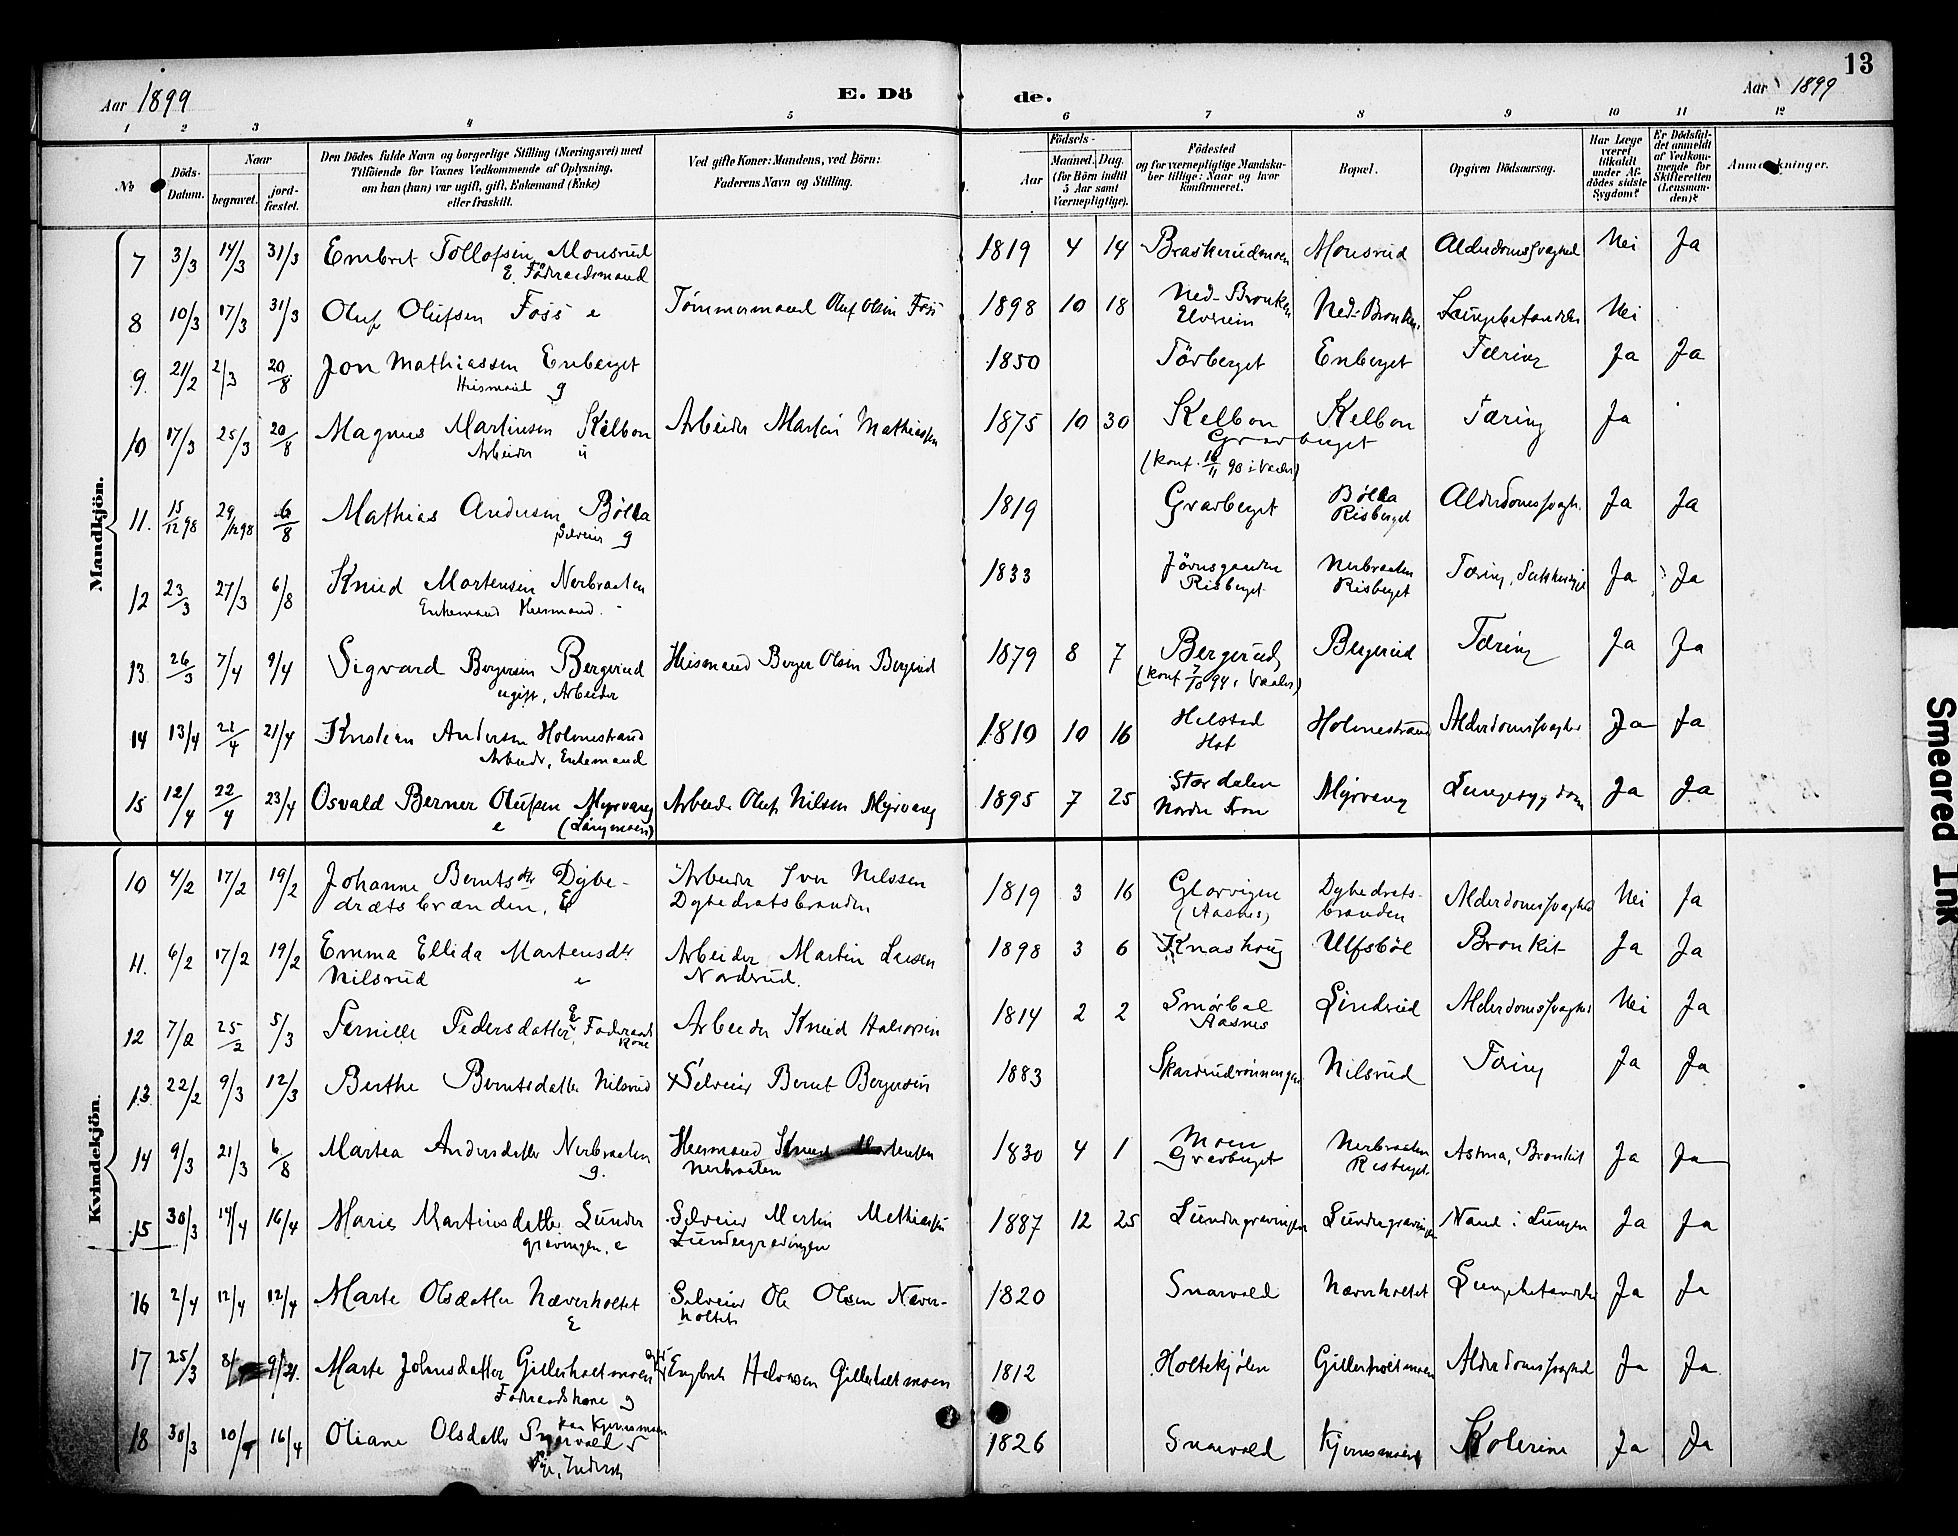 13
Aar 1899
E. Dö
de.
Aar 1899
1 2 3 4 5 6 7 8 9 10 11 12
No
Döds-Datum.
Naar
begravet.
jord-fæstet.
Den Dödes fulde Navn og borgerlige Stilling (Næringsvei) med
Tilföiende for Voxnes Vedkommende af Oplysning,
om han (hun) var ugift, gift, Enkemand (Enke)
eller fraskilt.
Ved gifte Koner: Mandens, ved Börn:
Faderens Navn og Stilling.
Födsels-
Aar
Maaned. Dag.
(for Börn indtil
5 Aar samt
Værnepligtige).
Födested
og for værnepligtige Mandska-
ber tillige: Naar og hvor
konfirmeret.
Bopæl.
Opgiven Dödsaarsag.
Har Læge
været
tilkaldt
under Af-
dödes sidste
Sygdom?
Er Dödsfal-
det anmeldt
af Vedkom-
mende for
Skifteretten
(Lensman-
den)?
Anmærkninger.
Mandkjön.
7 3/3 14/3 31/3 Embret Tollofsen Monsrud 1819 4 14 Braskerudmoen Monsrud Alderdomssvaghed Nei Ja
E. Föderaadsmand
8 10/3 17/3 31/3 Oluf Olufsen Foss e Tømmermand Oluf Olsen Foss 1898 10 18 Ned-Bronken Elverum Ned-Bronken Lungebetændelse Nei
9. 21/2 2/3 20/8 Jon Mathiassen Enberget 1850 Törberget Enberget Tæring Ja Ja
Husmand g
10 17/3 25/3 20/8 Magnus Martinsen Kelbon Arbeider Martin Mathiassen 1875 10 30 Kelbon Kelbon Tæring Ja
Arbeider u Gravberget
(konf. 16/11 90 i Vaaler)
11. 15/12 98 29/12 98 6/8 Mathias Andersen Bølla 1819 Gravberget Bølla Risberget Alderdomssvagh. Ja Ja
Selveier g
12 23/3 27/3 6/8 Knud Mortensen Nerbraaten 1833 Jörnsgaarden Risberget Nerbraaten Risberget Tæring, Ja Ja
Enkemand Husmand.
13 26/3 7/4 9/4 Sigvard Bergersen Bergerud Husmand Berger Olsen Bergerud 1879 8 7 Bergerud Bergerud Tæring Ja Ja
ugift, Arbeider (konf 7/10 94 i Vaaler)
14 13/4 21/4 21/4 Kristian Andersen Holmestrand 1810 10 16 Helstad Hof Holmestrand Alderdomssvaghed Ja Ja
Arbeider, Enkemand
15 12/4 22/4 23/4 Osvald Berner Olufsen Myrvang Arbeider Oluf Nilsen Myrvang 1895 7 25 Stordalen Nordre Fron Myrvang Lungesygdom Ja Ja
e (Langmoen)
Kvindekjön.
10 4/2 17/2 19/2 Johanne Berntsdtr Dybe- Arbeider Iver Nilssen 1819 3 16 Glorvigen (Aasnes) Dybedrets-branden Alderdomssvaghed Nei Ja
drætsbrænden, E Dybedratsbranden
11. 6/2 17/2 19/2 Emma Ellida Martensdtr Arbeider Martin Larsen 1898 3 6 Knashoug Ulfsböl Bronkit Ja Ja
Nilsrud e Nordsrud.
12 7/2 25/2 5/3 Pernille Pedersdatter, E Föderaads kone Arbeider Knud Halvorsen 1814 2 2 Smörbøl Aasnes Lindrud Alderdomssvaghed Nei Ja
13. 22/2 9/3 12/3 Berthe Berntsdatter Nilsrud Selveier Bernt Bergersen 1883 Skarderudrönningen Nilsrud Tæring Ja Ja
14 9/3 21/3 6/8 Martea Andersdatter Nerbraaten Husmand Knud Mortensen 1830 4 1 Moen Gravberget Nerbraaten Risberget Astma, Bronkit Ja Ja
g. Nerbraaten
15 30/3 14/4 16/4 Marie Martinsdatter Lunder Selveier Martin Mathiassen 1887 12 25 Lundergravingen Lundergravingen Vand i Lungen Ja Ja
gravingen, e Lundergravingen
16 2/4 12/4 12/4 Marte Olsdatter Næverholtet Selveier Ole Olsen Næver- 1820 Snarvold Næverholtet Lungebetændelse Ja Ja
E holtet
17 25/3 8/ 9/4. Marte Johnsdatter Gillerholtmoen Engbret Halvorsen Gillerholtmoen 1812 Holtekjølen Gillerholtmoen Alderdomssvaghed Ja Ja
Föderaadskone g
18 30/3 10/4 16/4 Oliane Olsdatter Snarvold 1826 Snarvold Kjernsmoen Kolerine Ja Ja
Smeared Ink